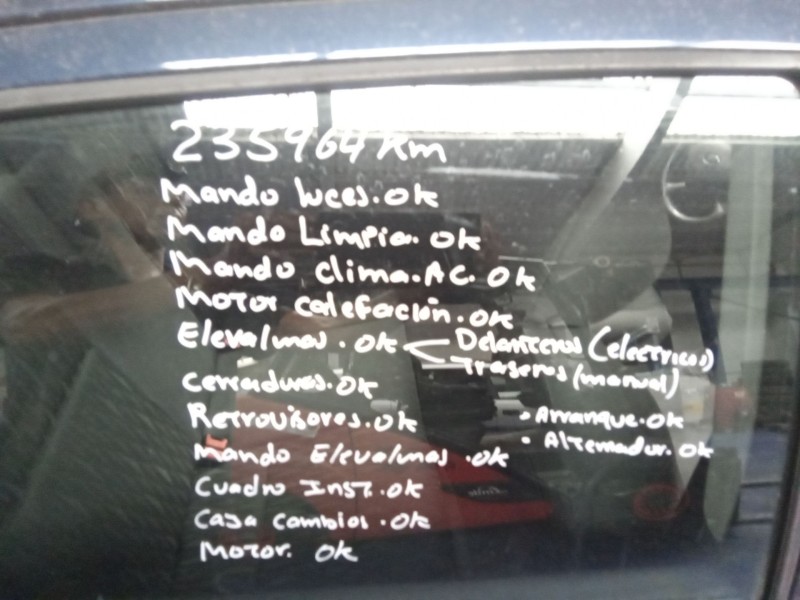 235964 Km
Mando luces. ok
Mando Limpia. ok
Mando clima. A.C. ok
Motor calefación. ok
Elevalunas. ok < Delanteros (electricos)
Traseros (manual)
cerraduras. ok
Retrovisores. ok
• Arranque. ok
• Alternador. ok
Mando Elevalunas. ok
Cuadro Inst. ok
Caja cambios. ok
Motor. ok